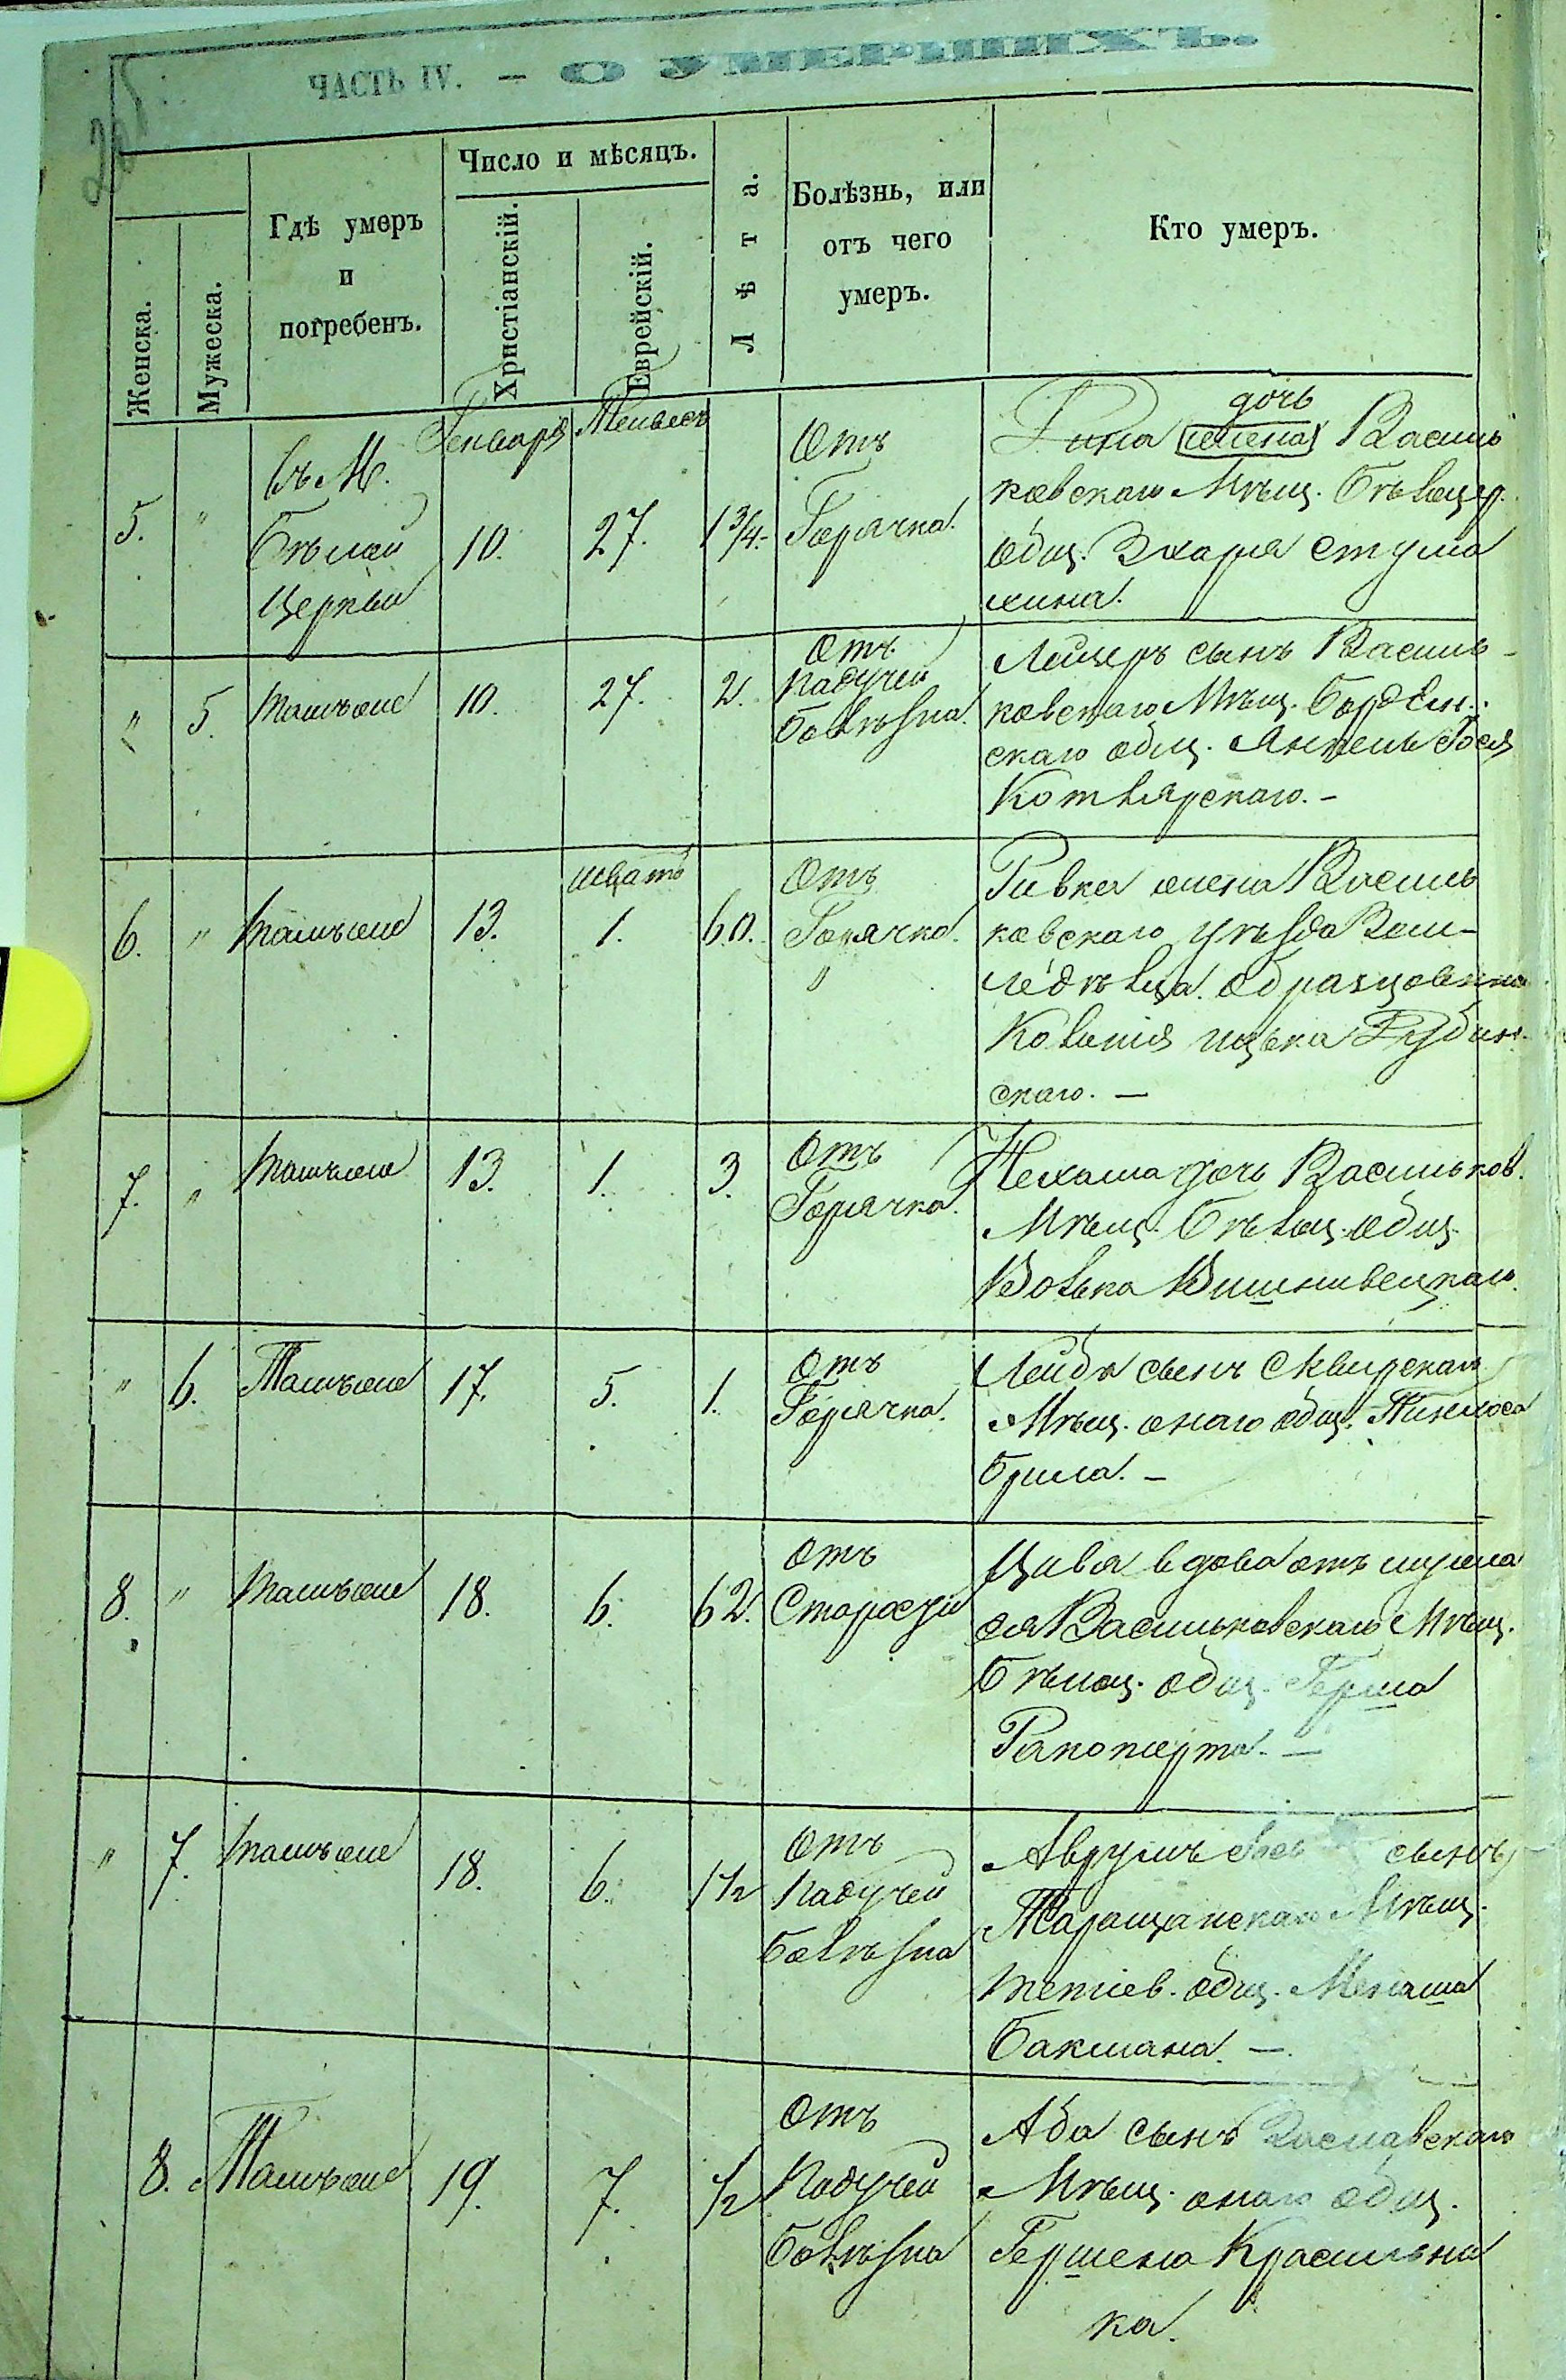 205
ЧАСТЬ IV. — О УМЕРШИХЪ.
Женска.
Мужеска.
Гдѣ умеръ
и
погребенъ.
Число и мѣсяцъ.
Христіанскій.
Еврейскій.
Лѣта.
Болѣзнь, или
отъ чего
умеръ.
Кто умеръ.
Генваря Тейвесъ
5. " въ М.
Бѣлой
Церкви
10. 27. 1¾.
Отъ
Горячка.
дочь
Дина жена Василь
ковскаго Мѣщ. Бѣлоцер.
общ.
" 5. тамъ же 10. 27. 2.
Отъ
Падучей
болѣзна.
Лейзеръ сынъ Василь-
ковскаго Мѣщ.
скаго общ.
Котлярскаго. —
6. " тамъ же 13.
шватъ
1. 60.
Отъ
Горячка.
"
Ривка жена Василь
ковскаго уѣзда Зем-
ледѣльца. образцовыхъ
Колонія ицька Рубин-
скаго. —
7. " тамъ же 13. 1. 3.
Отъ
Горячка.
Нехама дочь Васильков.
Мѣщ. Бѣлоц. общ.
Волька Вишнивецкаго.
" 6. Тамъ же 17. 5. 1.
Отъ
Горячка.
Лейба сынъ Сквирскаго
Мѣщ. онаго общ. Пинхоса
Брила. —
8. " тамъ же 18. 6. 62.
Отъ
Старости
Цивя вдова отъ мужа
ея Васильковскаго Мѣщ.
Бѣлоц. общ. Герша
Рапопорта. —
" 7. тамъ же 18. 6. 1½
Отъ
Падучей
болѣзна
Аврумъ сынъ
Таращанскаго Мѣщ.
тетіев. общ. Менаша
Бакмана. —
8. Тамъ же 19. 7. ½
Отъ
Падучей
болѣзна
Аба сынъ Заславскаго
Мѣщ. онаго общ.
Гершена Красильни
ка.